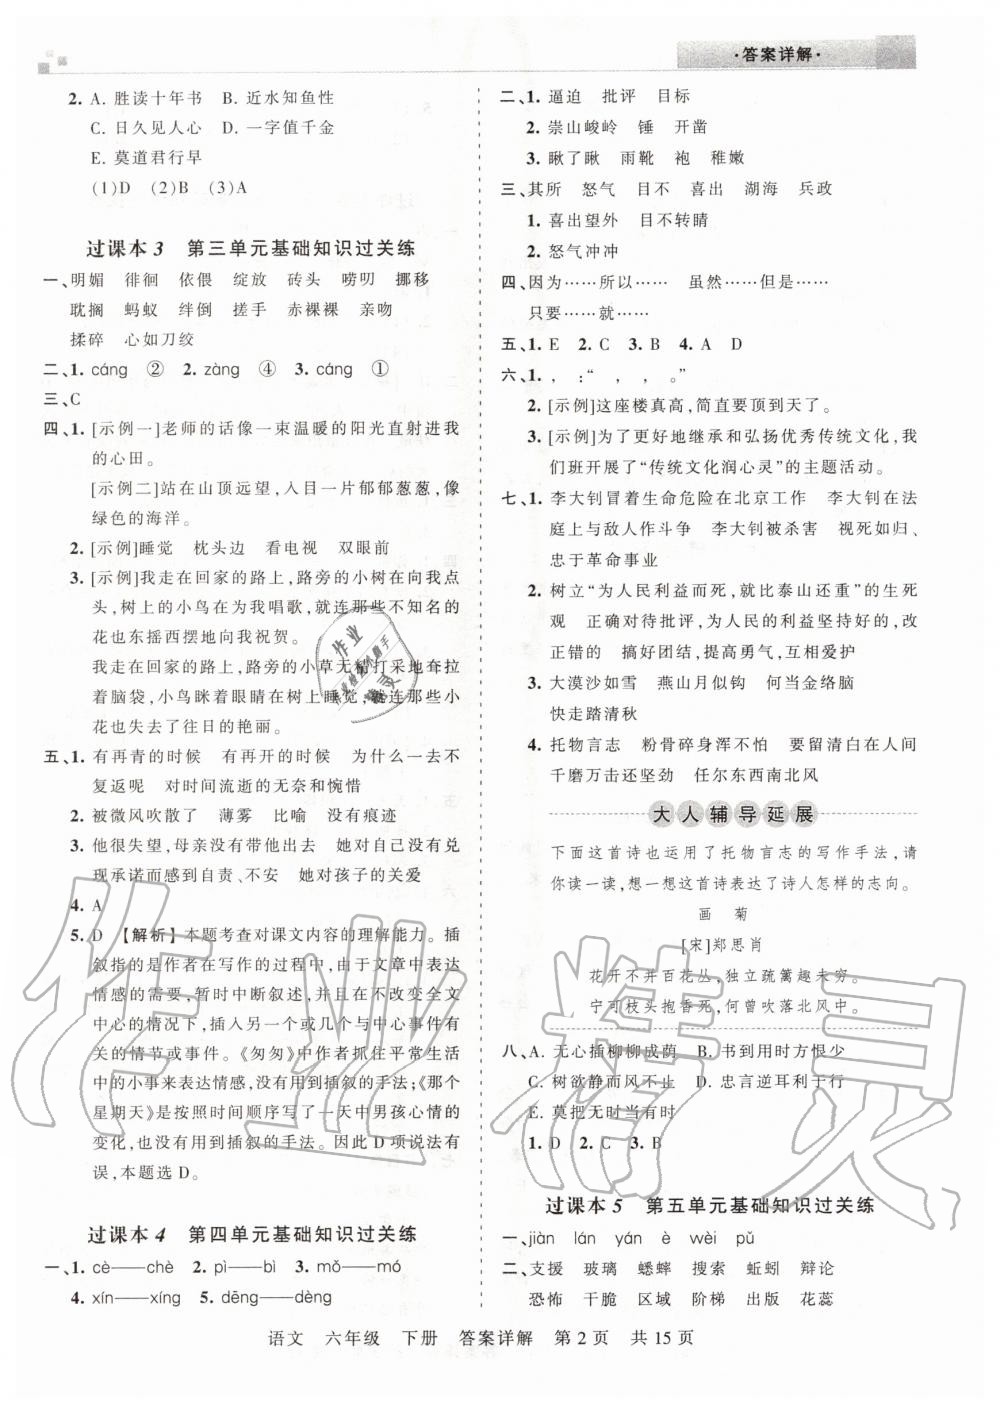 ·答案详解·
2. A. 胜读十年书 B. 近水知鱼性
C. 日久见人心 D. 一字值千金
E. 莫道君行早
(1)D (2)B (3)A
过课本 3 第三单元基础知识过关练
一、明媚 徘徊 依偎 绽放 砖头 唠叨 挪移
耽搁 蚂蚁 绊倒 搓手 赤裸裸 亲吻
揉碎 心如刀绞
二、1. cáng ② 2. zàng ④ 3. cáng ①
三、C
四、1. [示例一]老师的话像一束温暖的阳光直射进我
的心田。
[示例二]站在山顶远望,入目一片郁郁葱葱,像
绿色的海洋。
2. [示例]睡觉 枕头边 看电视 双眼前
3. [示例]我走在回家的路上,路旁的小树在向我点
头,树上的小鸟在为我唱歌,就连那些不知名的
花也东摇西摆地向我祝贺。
我走在回家的路上,路旁的小草无精打采地耷拉
着脑袋,小鸟眯着眼睛在树上睡,就连那些小
花也失去了往日的艳丽。
五、1. 有再青的时候 有再开的时候 为什么一去不
复返呢 对时间流逝的无奈和惋惜
2. 被微风吹散了 薄雾 比喻 没有痕迹
3. 他很失望,母亲没有带他出去 她对自己没有兑
现承诺而感到自责、不安 她对孩子的关爱
4. A
5. D 【解析】本题考查对课文内容的理解能力。插
叙指的是作者在写作的过程中,由于文章中表达
情感的需要,暂时中断叙述,并在不改变全文
中心的情况下,插入另一个或几个与中心事件有
关的情节或事件。《匆匆》中作者抓住平常生活
中的小事来表达情感,没有用插叙的手法;《那个
星期天》是按照时间顺序写了一天中男孩心情的
变化,也没有用到插叙的手法。因此 D 项说法有
误,本题选 D。
过课本 4 第四单元基础知识过关练
一、1. cè——chè 2. pì——bì 3. mǒ——mó
4. xín——xíng 5. dēng——dèng
二、1. 逼迫 批评 目标
2. 崇山峻岭 锤 开凿
3. 瞅了瞅 雨靴 袍 稚嫩
三、其所 怒气 目不 喜出 湖海 兵政
1. 喜出望外 目不转睛
2. 怒气冲冲
四、因为……所以…… 虽然……但是……
只要……就……
五、1. E 2. C 3. B 4. A D
六、1. , :“ , , 。”
2. [示例]这座楼真高,简直要顶到天了。
3. [示例]为了更好地继承和弘扬优秀传统文化,我
们班开展了“传统文化润心灵”的主题活动。
七、1. 李大钊冒着生命危险在北京工作 李大钊在法
庭上与敌人作斗争 李大钊被杀害 视死如归、
忠于革命事业
2. 树立“为人民利益而死,就比泰山还重”的生死
观 正确对待批评,为人民的利益坚持好的,改
正错的 搞好团结,提高勇气,互相爱护
3. 大漠沙如雪 燕山月似钩 何当金络脑
快走踏清秋
4. 托物言志 粉骨碎身浑不怕 要留清白在人间
千磨万击还坚劲 任尔东西南北风
大人辅导延展
下面这首诗也运用了托物言志的写作手法,请
你读一读,想一想这首诗表达了诗人怎样的志向。
画 菊
[宋]郑思肖
花开不并百花丛,独立疏篱趣未穷。
宁可枝头抱香死,何曾吹落北风中。
八、A. 无心插柳柳成荫 B. 书到用时方恨少
C. 树欲静而风不止 D. 忠言逆耳利于行
E. 莫把无时当有时
1. D 2. C 3. B
过课本 5 第五单元基础知识过关练
一、jiàn lán yán è wèi pǔ
二、支援 玻璃 蟋蟀 搜索 蚯蚓 辩论
恐怖 干脆 区域 阶梯 出版 花蕊
语文 六年级 下册 答案详解 第 2 页 共 15 页
作业精灵